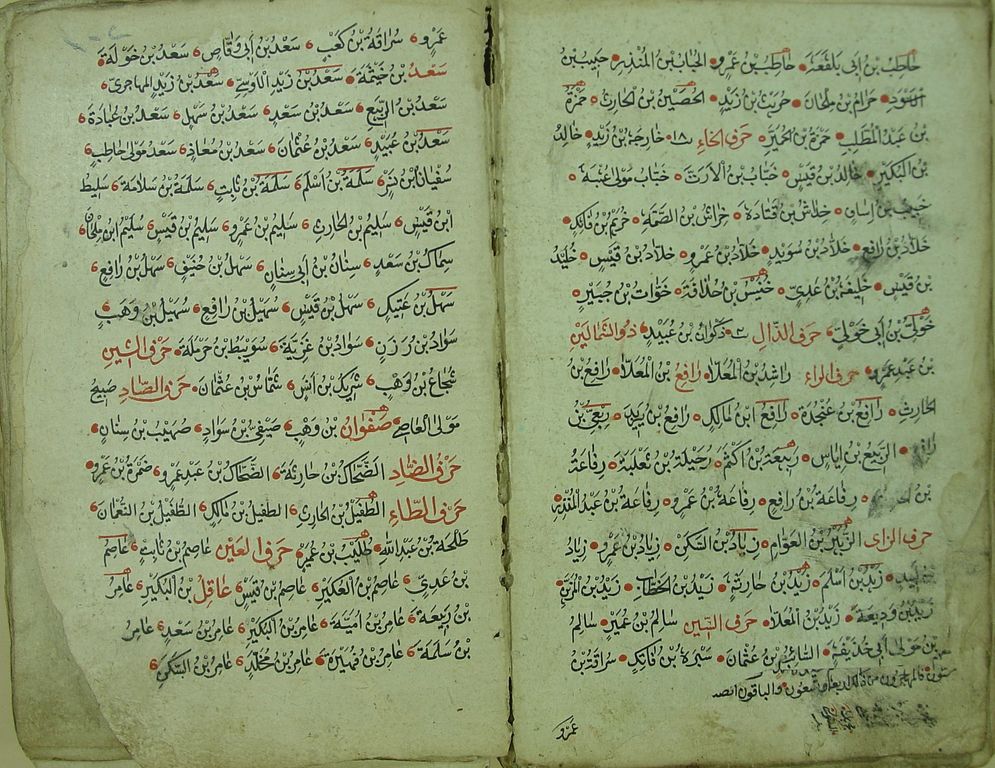 حاطب بن ابى بلتعة حاطب بن عمرو الحباب بن المنذر حبيب بن
الاسود حرام بن ملحان حريث بن زيد الحصين بن الحارث حمزة
بن عبد المطلب حمزة بن الحمير حرف الخاء ١٨ خارجة بن زيد خالد
بن البكير خالد بن قيس خباب بن الارت خباب مولى عتبة
خبيب بن اساف خلاش بن قتادة خراش بن الصمة خريم بن فاتك
خلاد بن رافع خلاد بن سويد خلاد بن عمرو خلاد بن قيس خليد
بن قيس خليفة بن عدى خنيس بن حذافة خوات بن جبير
خولى بن ابى خولى حرف الذال ٢ ذكوان بن عبيد ذو الشمالين
بن عبد عمرو حرف الراء راشد بن المعلا رافع بن المعلا رافع بن
الحارث رافع بن عنجدة رافع ابن مالك رافع بن يزيد ربعى بن
رافع الربيع بن اياس ربيعة بن اكثم رحيلة بن ثعلبة رفاعة
بن رفاعة بن رافع رفاعة بن عمرو رفاعة بن عبد المنذر
حرف الزاى الزبير بن العوام زياد بن السكن زياد بن عمرو زياد
بن لبيد زيد بن اسلم زيد بن حارثة زيد بن الخطاب زيد بن المزين
زيد بن وديعة زيد بن المعلا حرف السين سالم بن عمير سالم
بن مولى ابى حذيفة السائب بن عثمان سبرة بن فاتك سراقة بن
ستون فالمهاجرون من ذلك والباقون
عمرو
عمرو سراقة بن كعب سعد بن ابى وقاص سعد بن خولة
سعد بن خيثمة سعد بن زيد الاوسى سعد بن زيد المهاجرى
سعد بن الربيع سعد بن سعد سعد بن سهل سعد بن عبادة
سعد بن عبيد سعد بن عثمان سعد بن معاذ سعد مولى حاطب
سفيان بن نسر سلمة بن اسلم سلمة بن ثابت سلمة بن سلامة سليط
ابن قيس سليم بن الحارث سليم بن عمرو سليم بن قيس سليم ابن ملحان
سماك بن سعد سنان بن ابى سنان سهل بن حنيف سهل بن رافع
سهل بن عتيك سهل بن قيس سهيل بن رافع سهيل بن وهب
سواد بن رزن سواد بن غزية سويبط بن حرملة حرف الشين
شجاع بن وهب شريك بن انس شماس بن عثمان حرف الصاد صبيح
مولى العاص صفوان بن وهب صيفى بن سواد صهيب بن سنان
حرف الضاد الضحاك بن حارثة الضحاك بن عبد عمرو ضمرة بن عمرو
حرف الطاء الطفيل بن الحارث الطفيل بن مالك الطفيل بن النعمان
طلحة بن عبد الله طليب بن عمير حرف العين عاصم بن ثابت عاصم
بن عدى عاصم بن العكير عاصم بن قيس عاقل بن البكير عامر
بن ربيعة عامر بن امية عامر بن البكير عامر بن سعد عامر
بن سلمة عامر بن فهيرة عامر بن مخلد عامر بن السكن